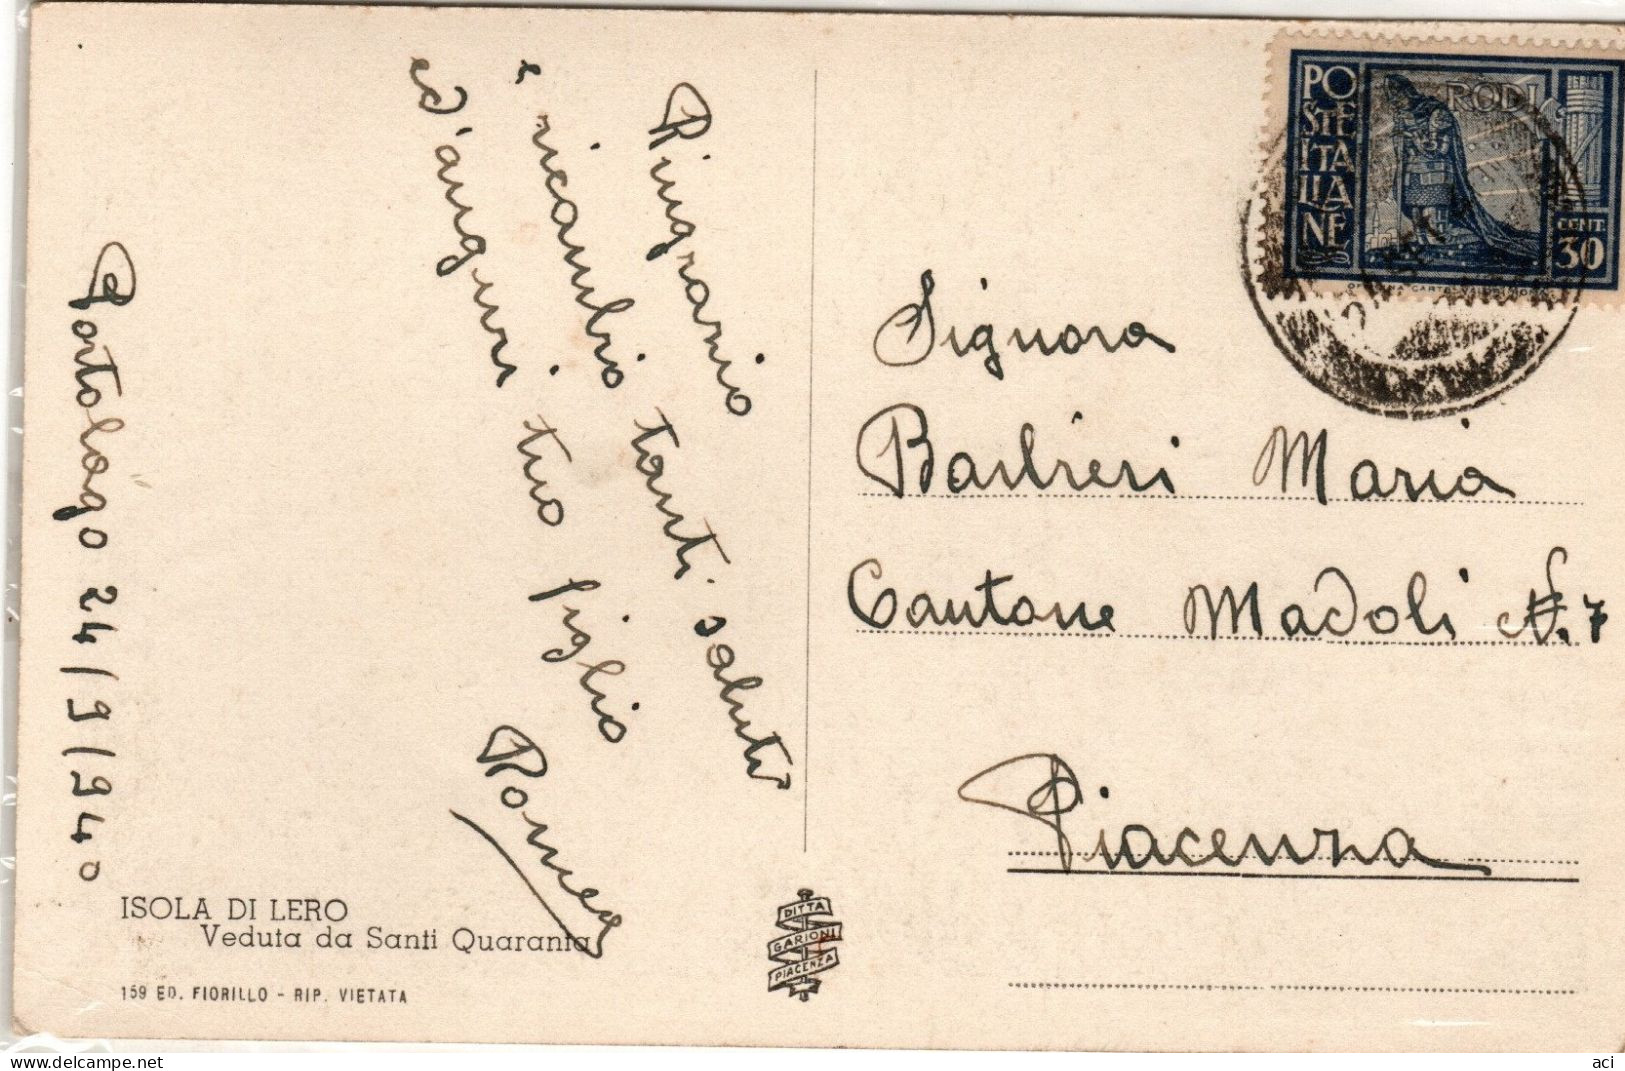 Portolago 24/9/940
Ringrazio
e ricambio tanti saluti
ed'auguri tuo figlio
Romeo
ISOLA DI LERO
Veduta da Santi Quaranta
159 ED. FIORILLO - RIP. VIETATA
DITTA
GARIONI
PIACENZA
POSTE ITALIANE
RODI
CENT.
30
Signora
Barbieri Maria
Cantone Madoli N. 7
Piacenza
aci